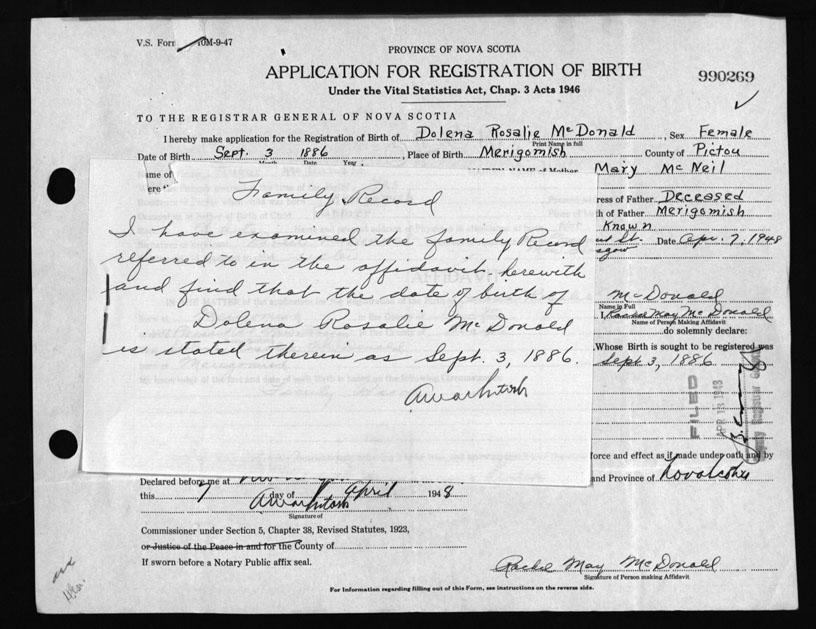 V.S. Form 10M-9-47
PROVINCE OF NOVA SCOTIA
APPLICATION FOR REGISTRATION OF BIRTH
990269
Under the Vital Statistics Act, Chap. 3 Acts 1946
TO THE REGISTRAR GENERAL OF NOVA SCOTIA
I hereby make application for the Registration of Birth of Dolena Rosalie McDonald, Sex Female
Print Name in full
Date of Birth Sept. 3 1886, Place of Birth Merigomish County of Pictou
Month Date Year
Name of
Mother Mary McNeil
ere
ress of Father Deceased
h of Father Merigomish
Known
St. Date Apr. 7, 1948
gow
Family Record
I have examined the family Record
referred to in the affidavit herewith
and find that the date of birth of
Dolena Rosalie McDonald
is stated therein as Sept. 3, 1886.
McDonald
Name in Full
I, Rachel May McDonald
Name of Person Making Affidavit
do solemnly declare:
Whose Birth is sought to be registered was
Sept 3, 1886
FILED
APR 13 1948
force and effect as if made under oath and by
and Province of Nova Scotia
Declared before me at
this 7 day of April 1948
Signature of
Commissioner under Section 5, Chapter 38, Revised Statutes, 1923,
or Justice of the Peace in and for the County of
If sworn before a Notary Public affix seal.
Rachel May McDonald
Signature of Person making Affidavit
For Information regarding filling out of this Form, see instructions on the reverse side.